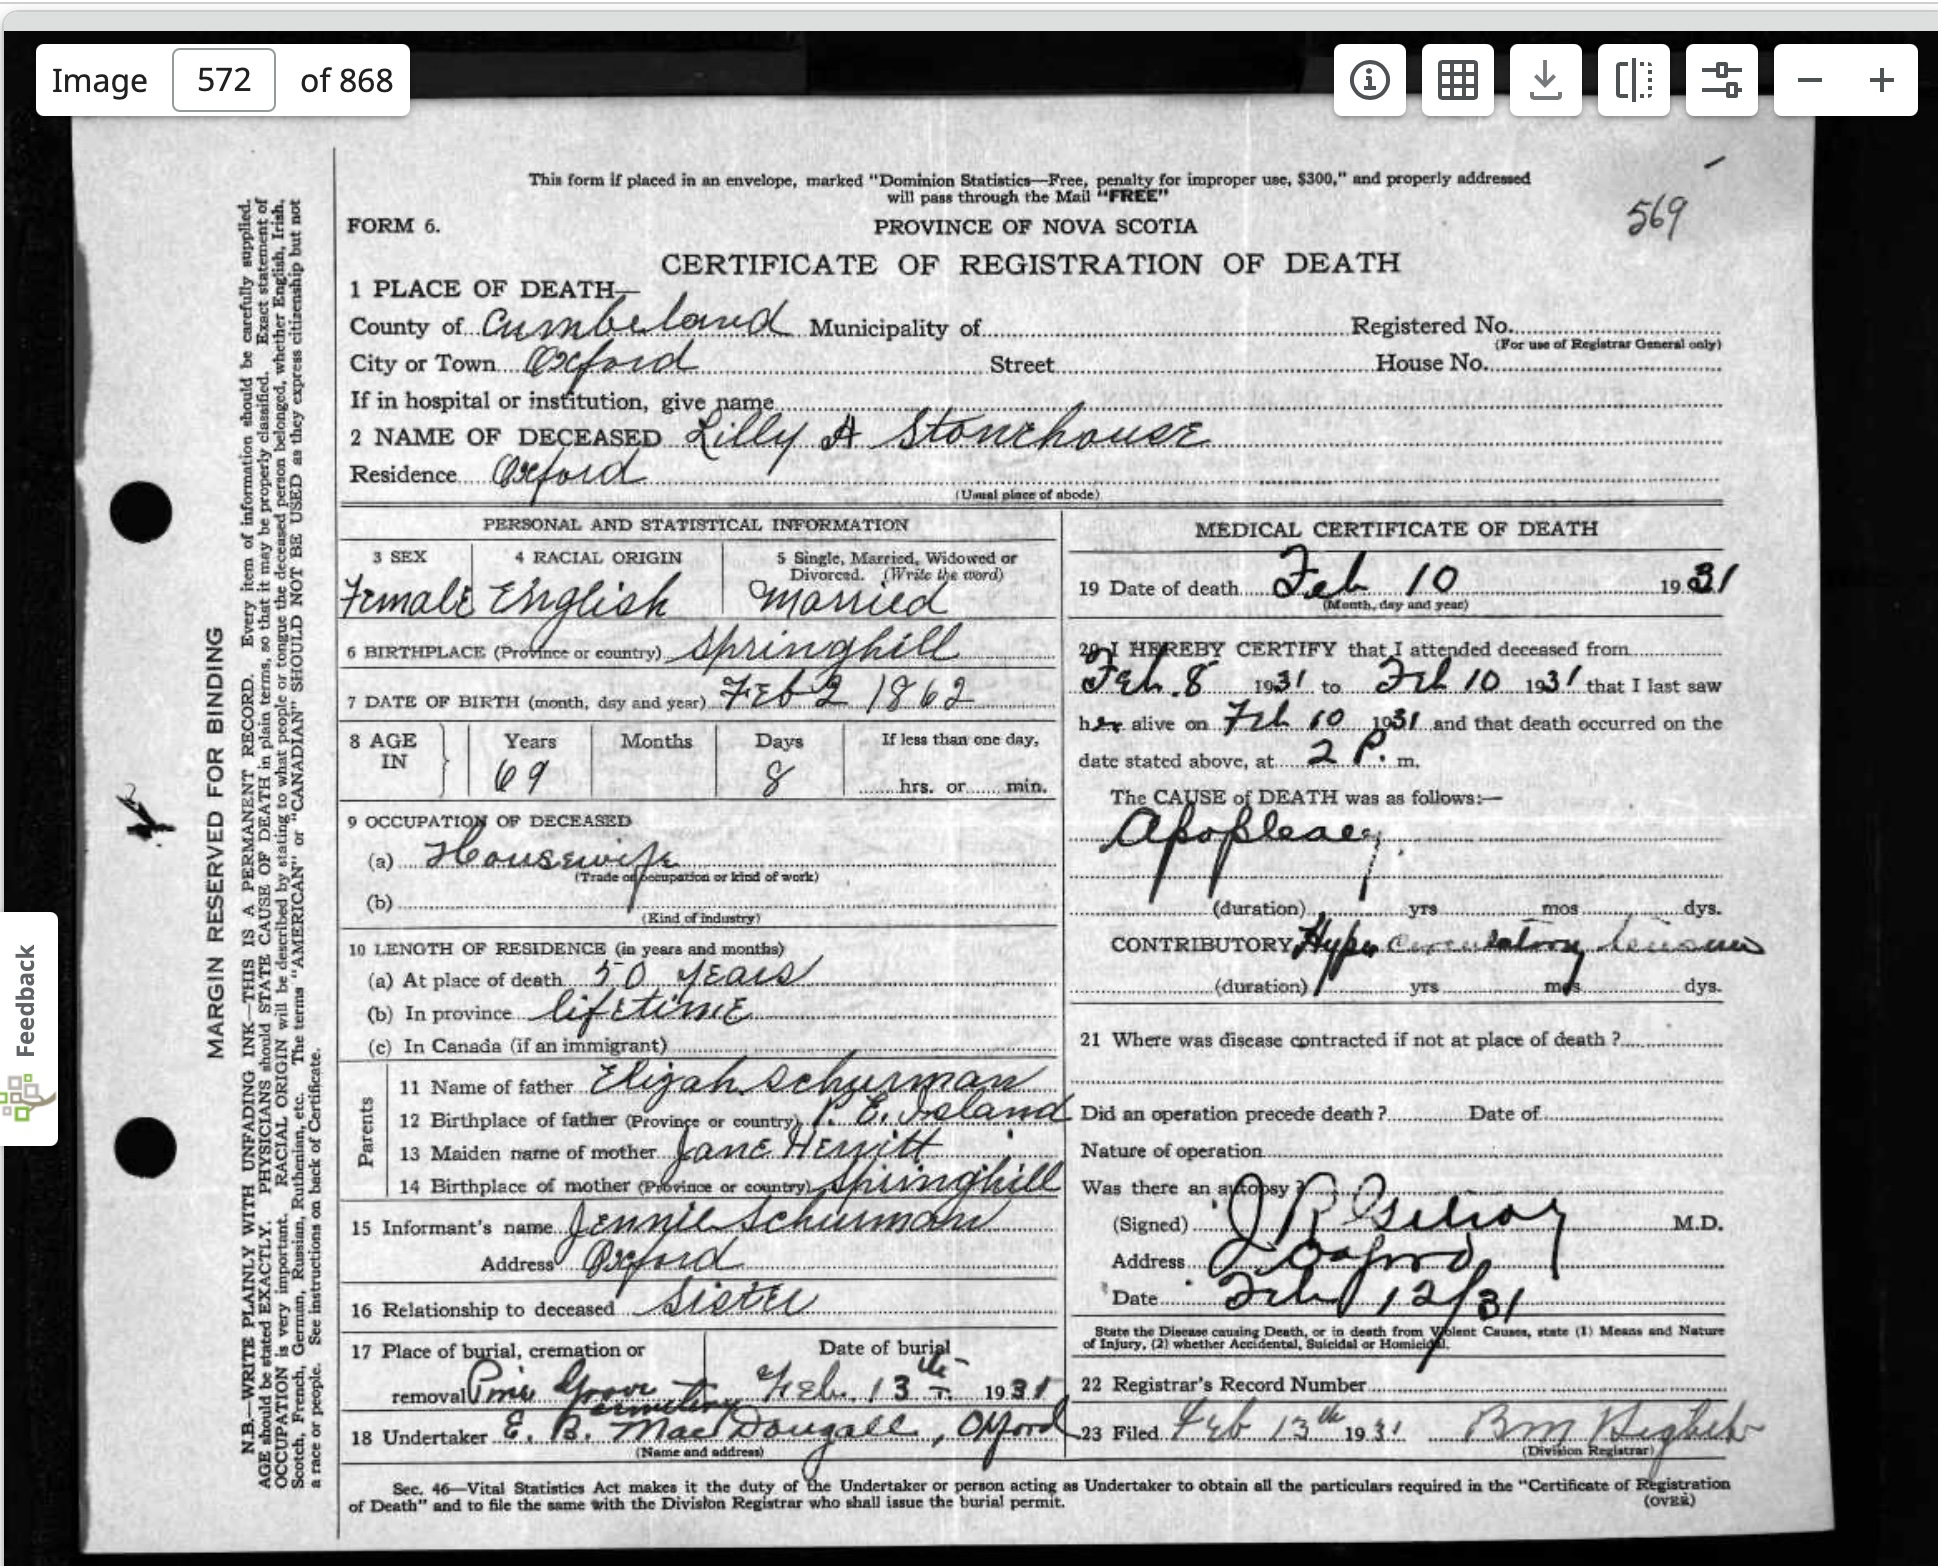 Image 572 of 868
This form if placed in an envelope, marked "Dominion Statistics—Free, penalty for improper use, $300," and properly addressed
will pass through the Mail "FREE"
569
FORM 6.
PROVINCE OF NOVA SCOTIA
CERTIFICATE OF REGISTRATION OF DEATH
1 PLACE OF DEATH—
County of Cumbeland Municipality of Registered No.
(For use of Registrar General only)
City or Town Oxford Street House No.
If in hospital or institution, give name
2 NAME OF DECEASED Lilly A Stonehouse
Residence Oxford
(Usual place of abode)
PERSONAL AND STATISTICAL INFORMATION
3 SEX 4 RACIAL ORIGIN 5 Single, Married, Widowed or
Divorced. (Write the word)
Female English Married
6 BIRTHPLACE (Province or country) Springhill
7 DATE OF BIRTH (month, day and year) Feb 2 1862
8 AGE IN Years Months Days If less than one day,
69 8 hrs. or min.
9 OCCUPATION OF DECEASED
(a) Housewife
(Trade or occupation or kind of work)
(b)
(Kind of industry)
10 LENGTH OF RESIDENCE (in years and months)
(a) At place of death 50 years
(b) In province lifetime
(c) In Canada (if an immigrant)
Parents
11 Name of father Elijah Schurman
12 Birthplace of father (Province or country) P. E. Island
13 Maiden name of mother Jane Hewitt
14 Birthplace of mother (Province or country) Springhill
15 Informant's name Jennie Schurman
Address Oxford
16 Relationship to deceased Sister
17 Place of burial, cremation or Date of burial
removal Pine Grove Cemetery Feb. 13th 1931
18 Undertaker E. B. MacDougall, Oxford
(Name and address)
MEDICAL CERTIFICATE OF DEATH
19 Date of death Feb 10 1931
(Month, day and year)
20 I HEREBY CERTIFY that I attended deceased from
Feb. 8 1931 to Feb 10 1931 that I last saw
her alive on Feb 10 1931 and that death occurred on the
date stated above, at 2 P. m.
The CAUSE of DEATH was as follows:—
Apoplexy
(duration) yrs mos dys.
CONTRIBUTORY Hyper circulatory tension
(duration) yrs mos dys.
21 Where was disease contracted if not at place of death ?
Did an operation precede death ? Date of
Nature of operation
Was there an autopsy ?
(Signed) J R Gilroy M.D.
Address Oxford
Date Feb 12/31
State the Disease causing Death, or in death from Violent Causes, state (1) Means and Nature
of Injury, (2) whether Accidental, Suicidal or Homicidal.
22 Registrar's Record Number
23 Filed Feb 13th 1931 B M
(Division Registrar)
Sec. 46—Vital Statistics Act makes it the duty of the Undertaker or person acting as Undertaker to obtain all the particulars required in the "Certificate of Registration
of Death" and to file the same with the Division Registrar who shall issue the burial permit.
(OVER)
MARGIN RESERVED FOR BINDING
N.B.—WRITE PLAINLY WITH UNFADING INK—THIS IS A PERMANENT RECORD. Every item of information should be carefully supplied.
AGE should be stated EXACTLY. PHYSICIANS should STATE CAUSE OF DEATH in plain terms, so that it may be properly classified. Exact statement of
OCCUPATION is very important. RACIAL ORIGIN will be described by stating to what people or tongue the deceased person belonged, whether English, Irish,
Scotch, French, German, Russian, Ruthenian, etc. The terms "AMERICAN" or "CANADIAN" SHOULD NOT BE USED as they express citizenship but not
a race or people. See instructions on back of Certificate.
Feedback